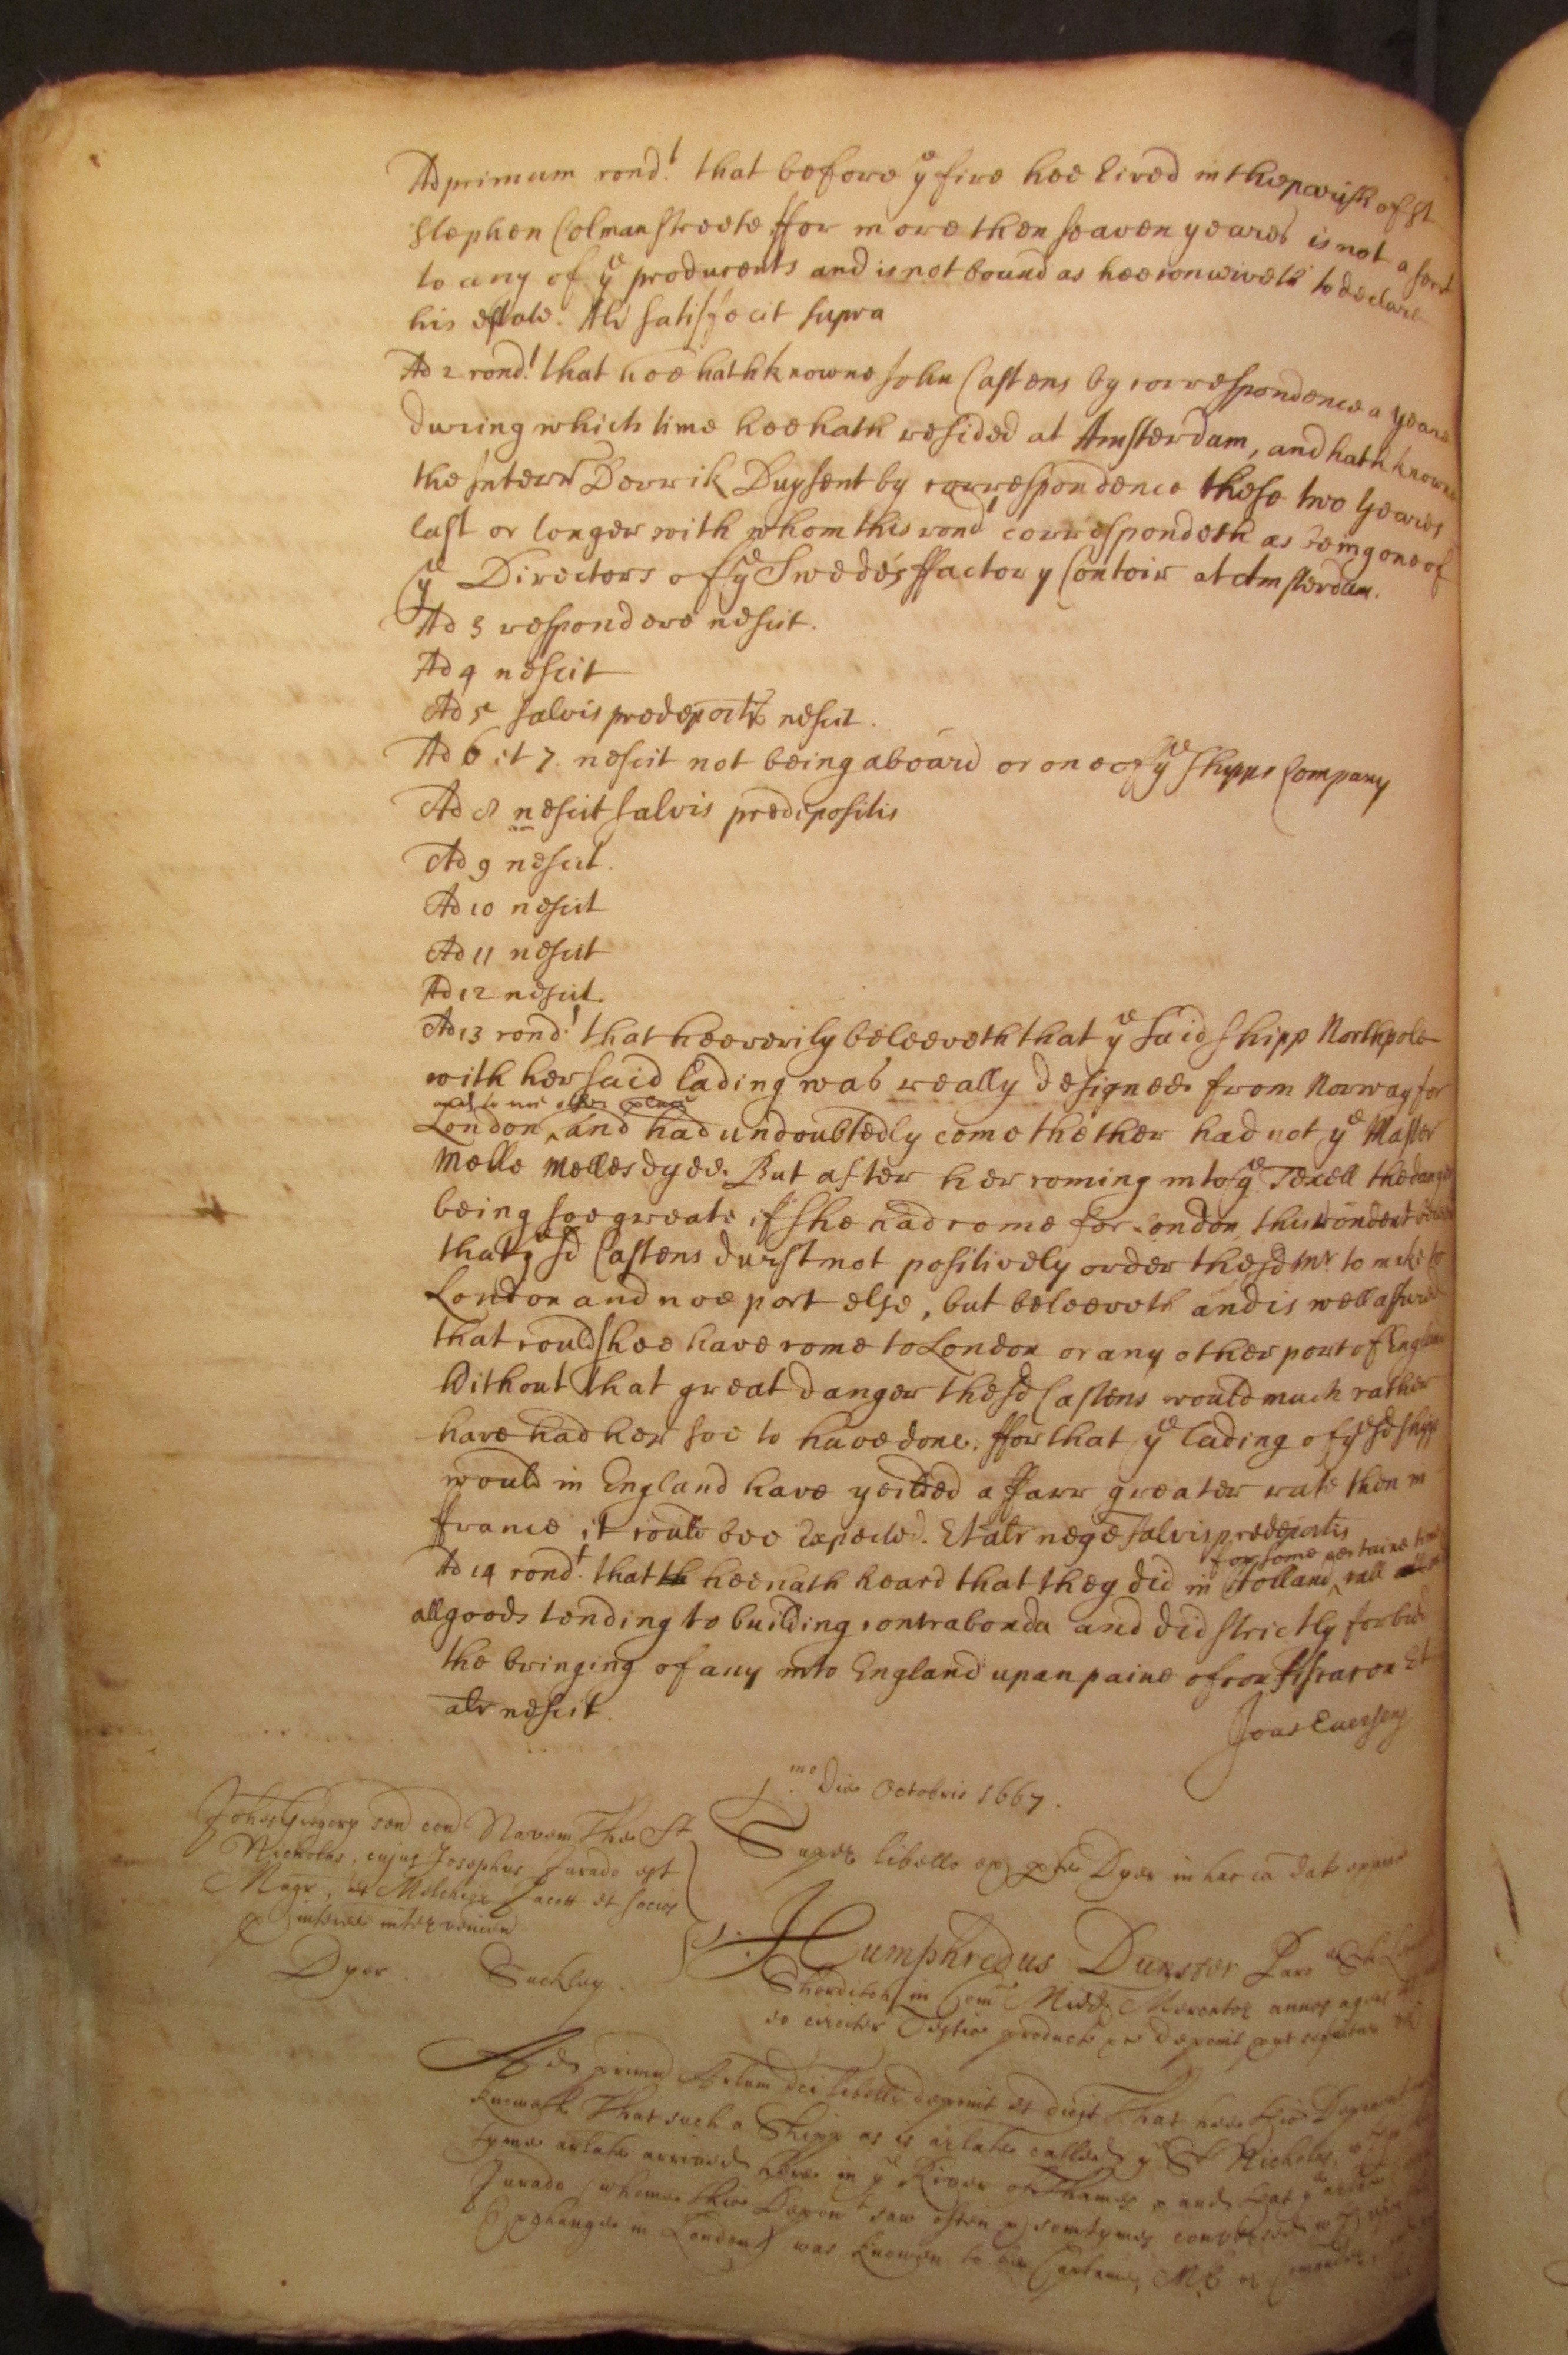 Ad primum rond.t that before ye fire hee lived in the parish of St
Stephen Colman streete ffor more then seaven yeares is not a serv
to any of ye producents and is not bound as hee conceiveth to declare
his estate. Alr satisfecit supra
Ad 2 rond.t that hee hath knowne John Castens by correspondence a yeare
during which time hee hath resided at Amsterdam, and hath knowne
the Interr Derrik Duysent by correspondence these two yeares
last or longer with whom this rond.t correspondeth as being one of
ye Directors of ye Swedes ffactory Contoir at Amsterdam.
Ad 3 respondere nescit.
Ad 4 nescit
Ad 5 salvis predeposit nescit.
Ad 6 et 7. nescit not being aboard or one of ye shipps Company
Ad 8 nescit salvis predepositis
Ad 9 nescit.
Ad 10 nescit
Ad 11 nescit
Ad 12 nescit.
Ad 13 rond.t that hee verily beleeveth that ye said shipp Northpole
with her said lading was really designed from Norway for
and to noe other place
London, and had undoubtedly come thether had not ye Master
Melle Melles dyed. But after her coming into ye Texell the danger
being soe greate if she had come for London, this rondent
that ye sd Castens durst not positively order the sd Mr. to make to
London and noe port else, but beleeveth and is well assured
that could shee have come to London or any other port of England
Without that great danger the sd Castens would much rather
have had her soe to have done. ffor that ye lading of ye sd shipp
would in England have yeilded a ffarr greater rate then in
ffrance it could bee expected. Et alr nege salvis predepositis
for some certaine time
Ad 14 rond.t that hee hath heard that they did in Holland, call
all goods tending to building contrabanda and did strictly forbid
the bringing of any into England upan paine of confiscacon Et
alr nescit.
Jons Euersen
1mo Die Octobris 1667.
Johes Gregory con Navem The St
Nicholas, cujus Josephus Jurado est
Magr, et Melchior et socios
p interee intervenien
Dyer. Suckley.
Super libello ex pte Dyer in hac ca dat
1. Humphredus Dunster Par
Shorditch in Com Midd Mercator annos agens
eo circiter Testis product
Ad primu Artum dci libelli deponit et dicit That hee this Deponent
knoweth That such a Shipp as is arlate called ye St Nicholas,
tyme arlate arrived here in ye River of Thames and that ye arlate
Jurado (whome this Depont saw often & somtymes conversed wth
Exchange in London) was knowen to be Captaine Mr or Comander